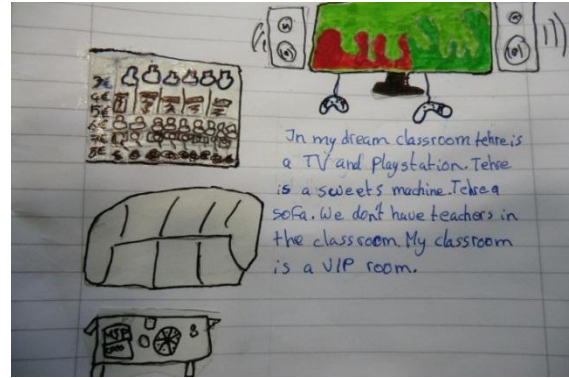 3€
4€
5€
6€
7€
8€
In my dream classroom tehre is
a TV and Playstation. Tehre
is a sweets machine. Tehre a
sofa. We don't have teachers in
the classroom. My classroom
is a VIP room.
VIP